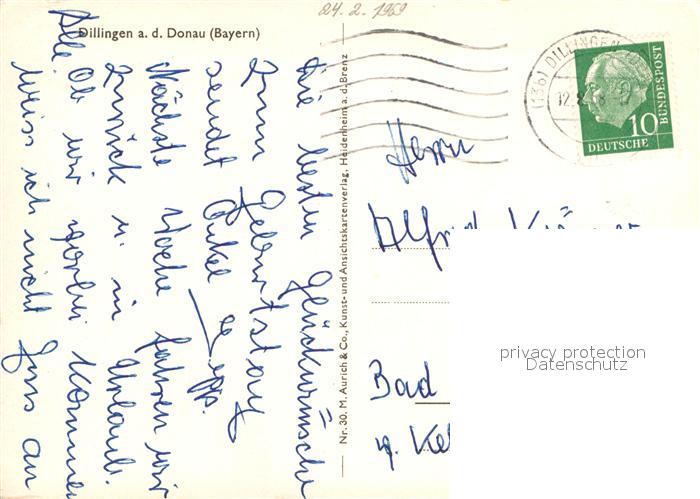 24. 2. 1969
Dillingen a. d. Donau (Bayern)
Die besten Glückwünsche
zum Geburtstag
sendet Onkel
Nächste Woche fahren wir
zurück u. in Urlaub.
Ob wir vorbei kommen
weiss ich nicht Gruss an
Alle
Nr. 30. M. Aurich & Co., Kunst- und Ansichtskartenverlag, Heidenheim a. d. Brenz
(13b) DILLINGEN
12.8
10
DEUTSCHE
BUNDESPOST
Herrn
Alfred
Bad
privacy protection
Datenschutz